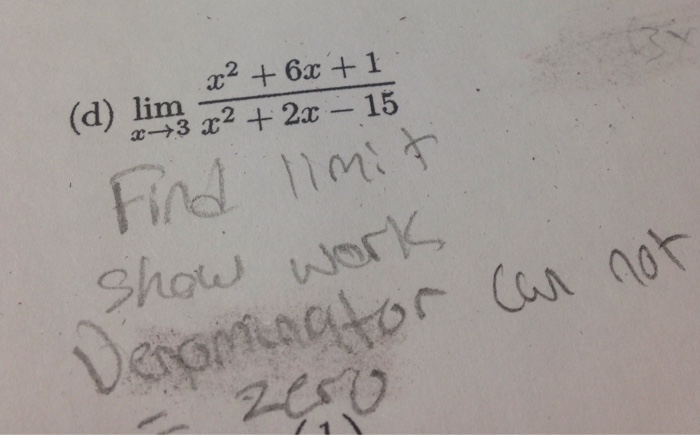 (d) lim x→3 x² + 6x + 1 / x² + 2x − 15
Find limit
show work
Denominator can not
= zero
(1)